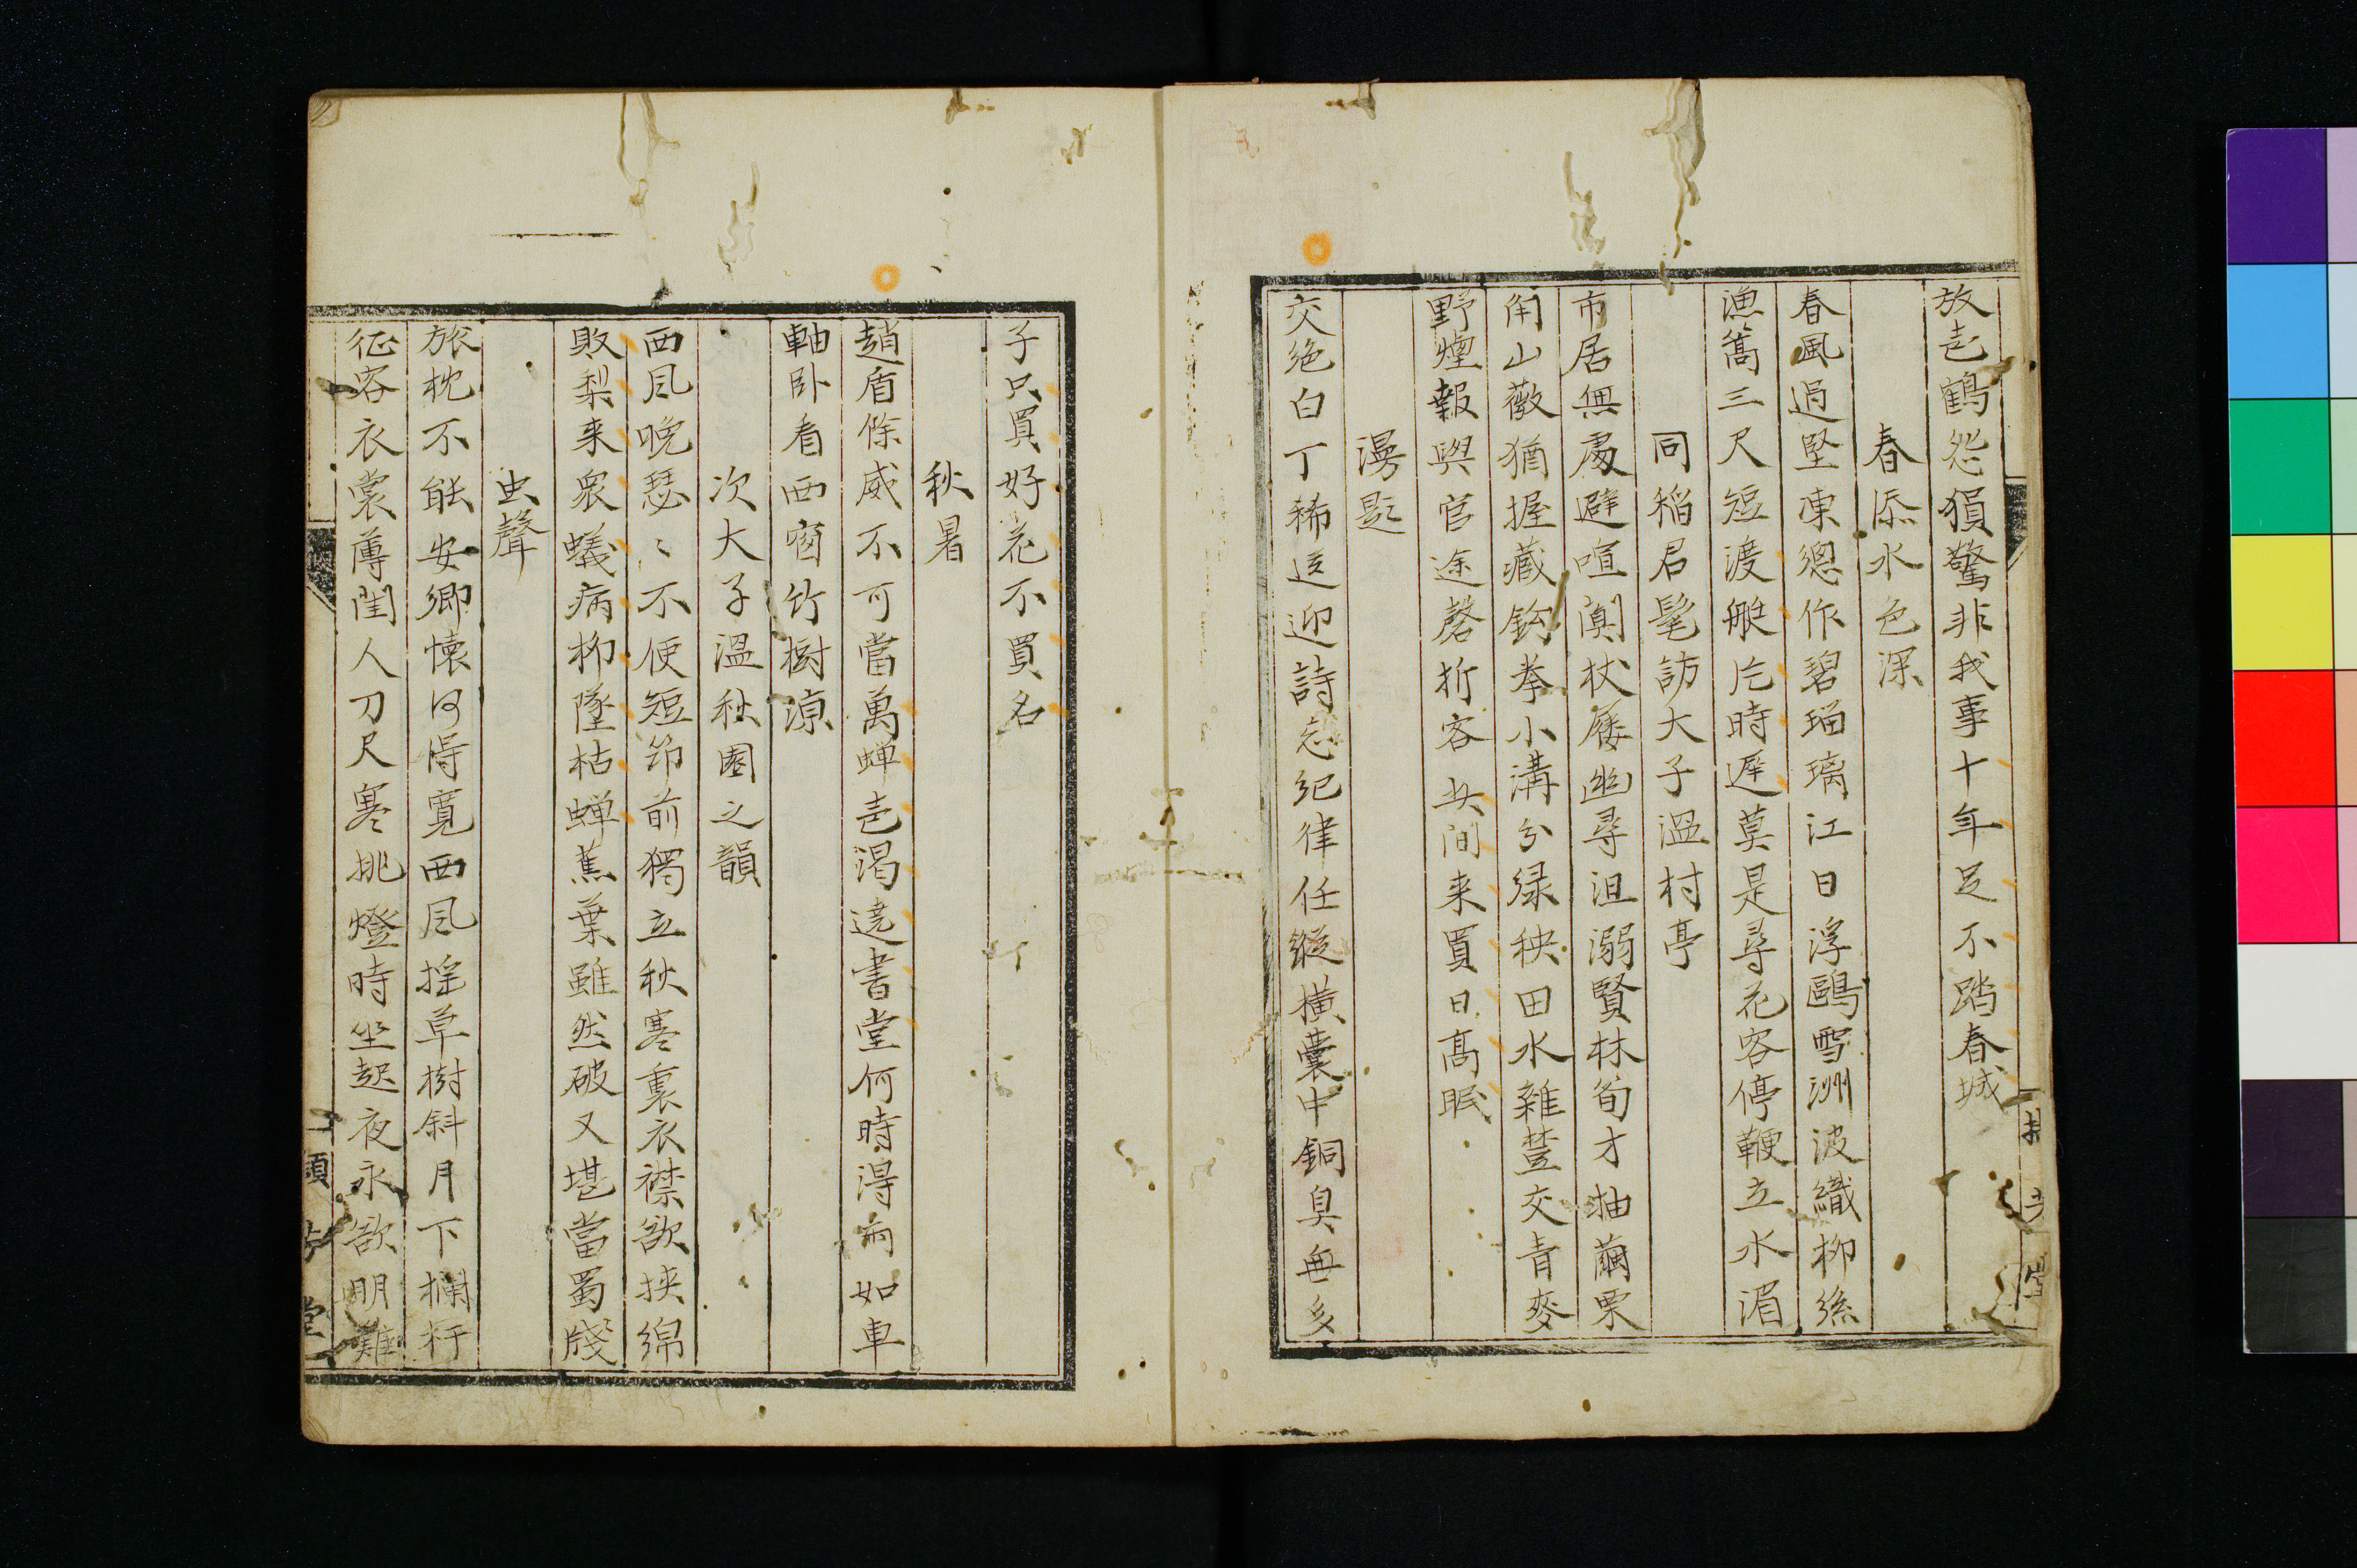 放走鶴怨猿驚非我事十年足不踏春城
春添水色深
春風過堅凍總作碧瑠璃江日浮鷗雪洲波織柳絲
漁篙三尺短渡艇片時遲莫是尋花客停鞭立水湄
同稲君髦訪大子温村亭
市居無處避喧闐杖屨幽尋沮溺賢林筍才抽繭栗
角山薇猶握藏鈎拳小溝分緑秧田水雜荳交青麥
野煙報與官途磬折客此間来買日高眠
漫题
交绝白丁稀送迎詩忘紀律任縱横囊中銅臭無多
子只買好花不買名
秋暑
趙盾餘威不可當萬蝉声渇遶書堂何時得雨如車
軸卧看西窗竹樹涼
次大子温秋園之韻
西風晩瑟〻不便短笻前獨立秋寒裏衣襟欲挟綿
敗梨来衆蟻病柳墜枯蝉蕉葉雖然破又堪當蜀牋
虫聲
旅枕不能安郷懐何得寛西風揺草樹斜月下欄杆
征客衣裳薄閨人刀尺寒挑燈時坐起夜永欲明難
堂